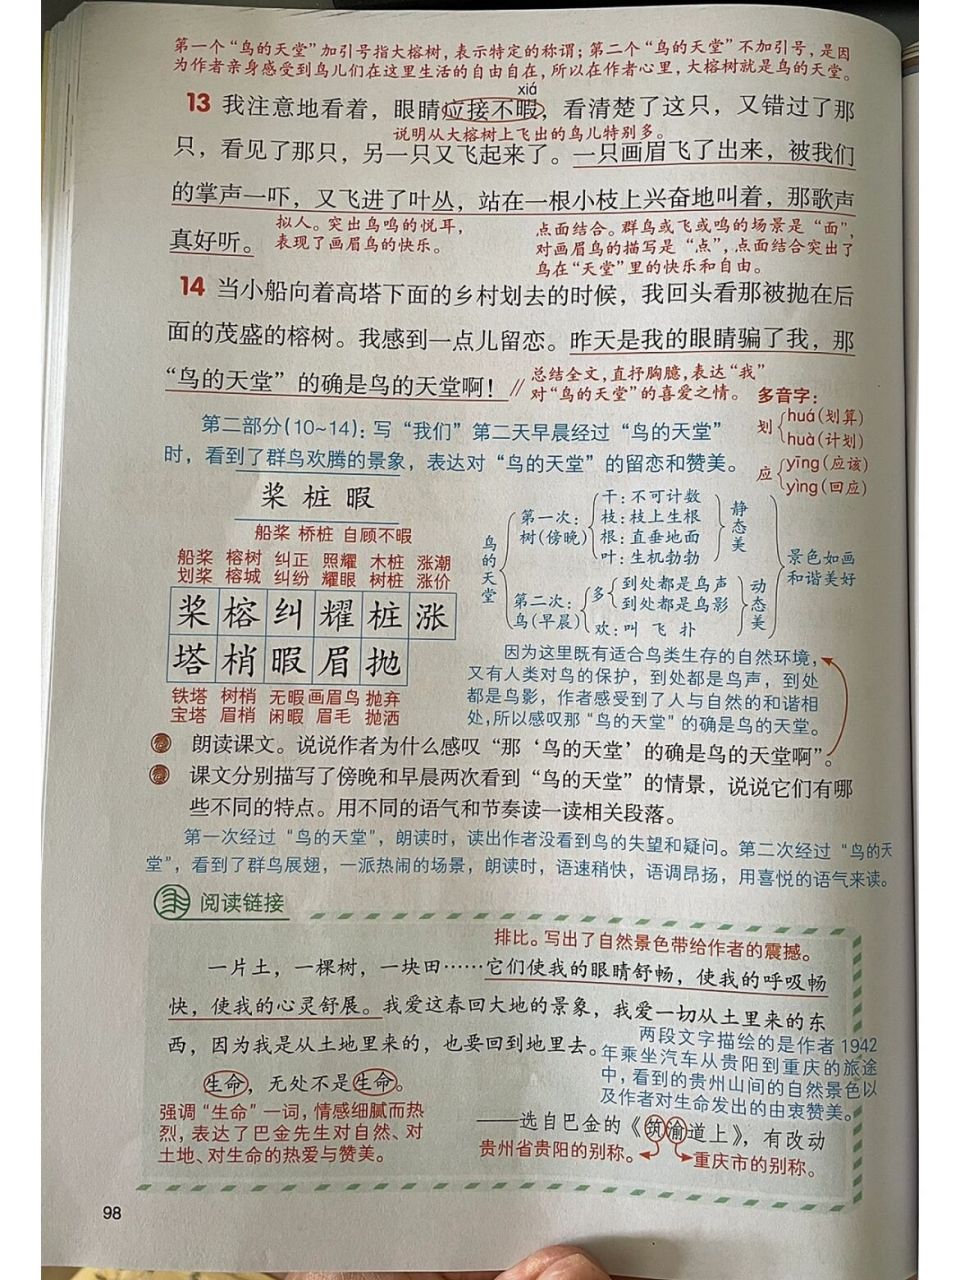 第一个“鸟的天堂”加引号指大榕树，表示特定的称谓；第二个“鸟的天堂”不加引号，是因
为作者亲身感受到鸟儿们在这里生活的自由自在，所以在作者心里，大榕树就是鸟的天堂。
xiá
13 我注意地看着，眼睛应接不暇，看清楚了这只，又错过了那
说明从大榕树上飞出的鸟儿特别多。
只，看见了那只，另一只又飞起来了。一只画眉飞了出来，被我们
的掌声一吓，又飞进了叶丛，站在一根小枝上兴奋地叫着，那歌声
真好听。
拟人。突出鸟鸣的悦耳，
表现了画眉鸟的快乐。
点面结合。群鸟或飞或鸣的场景是“面”，
对画眉鸟的描写是“点”，点面结合突出了
鸟在“天堂”里的快乐和自由。
14 当小船向着高塔下面的乡村划去的时候，我回头看那被抛在后
面的茂盛的榕树。我感到一点儿留恋。昨天是我的眼睛骗了我，那
“鸟的天堂”的确是鸟的天堂啊！//
总结全文，直抒胸臆，表达“我”
对“鸟的天堂”的喜爱之情。
多音字：
划 huá（划算）
huà（计划）
应 yīng（应该）
yìng（回应）
第二部分（10~14）：写“我们”第二天早晨经过“鸟的天堂”
时，看到了群鸟欢腾的景象，表达对“鸟的天堂”的留恋和赞美。
桨 桩 暇
船桨 桥桩 自顾不暇
船桨 榕树 纠正 照耀 木桩 涨潮
划桨 榕城 纠纷 耀眼 树桩 涨价
桨 榕 纠 耀 桩 涨
塔 梢 暇 眉 抛
铁塔 树梢 无暇 画眉鸟 抛弃
宝塔 眉梢 闲暇 眉毛 抛洒
鸟的天堂
第一次：
树（傍晚）
干：不可计数
枝：枝上生根
根：直垂地面
叶：生机勃勃
静态美
第二次：
鸟（早晨）
多 到处都是鸟声
到处都是鸟影
欢：叫 飞 扑
动态美
景色如画
和谐美好
因为这里既有适合鸟类生存的自然环境，
又有人类对鸟的保护，到处都是鸟声，到处
都是鸟影，作者感受到了人与自然的和谐相
处，所以感叹那“鸟的天堂”的确是鸟的天堂。
朗读课文。说说作者为什么感叹“那‘鸟的天堂’的确是鸟的天堂啊”。
课文分别描写了傍晚和早晨两次看到“鸟的天堂”的情景，说说它们有哪
些不同的特点。用不同的语气和节奏读一读相关段落。
第一次经过“鸟的天堂”，朗读时，读出作者没看到鸟的失望和疑问。第二次经过“鸟的天
堂”，看到了群鸟展翅，一派热闹的场景，朗读时，语速稍快，语调昂扬，用喜悦的语气来读。
阅读链接
排比。写出了自然景色带给作者的震撼。
一片土，一棵树，一块田……它们使我的眼睛舒畅，使我的呼吸畅
快，使我的心灵舒展。我爱这春回大地的景象，我爱一切从土里来的东
西，因为我是从土地里来的，也要回到地里去。
两段文字描绘的是作者1942
年乘坐汽车从贵阳到重庆的旅途
中，看到的贵州山间的自然景色以
及作者对生命发出的由衷赞美。
生命，无处不是生命。
强调“生命”一词，情感细腻而热
烈，表达了巴金先生对自然、对
土地、对生命的热爱与赞美。
——选自巴金的《筑渝道上》，有改动
贵州省贵阳的别称。
重庆市的别称。
98